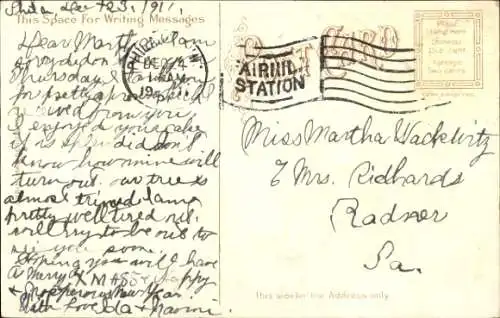 Phila Dec 23, 1911.
This Space For Writing Messages
Dear Martha I am
Thursday
for pretty present I
received from you
I enjoyed your cake
it is splendid don't
know how mine will
turn out. our tree is
almost trimed I am
pretty well tired out.
will try to be out to
see you soon.
Hoping you will have
a Merry XMAS & a happy
& Prosperous New Year.
With Love Ida & Naomi.
POST CARD
PHILADELPHIA
DEC 24
19
STATION
Place
Stamp Here
Domestic
One Cent
Foreign
Two Cents
Miss Martha Wackwitz
C Mrs. Richards
Radnor
Pa.
This side for the Address only